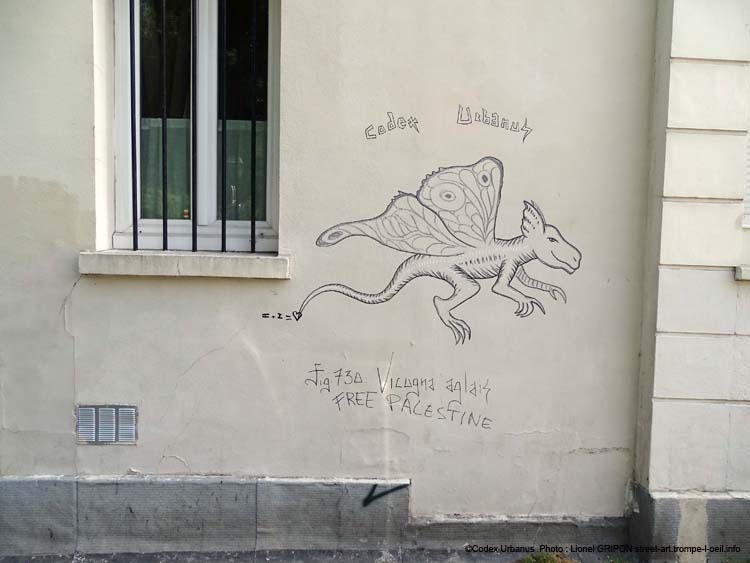 Codex Urbanus
= + 2 = ♡
Fig 730 Vicugna aglais
FREE PALESTINE
©Codex Urbanus Photo : Lionel GRIPON street-art.trompe-l-oeil.info